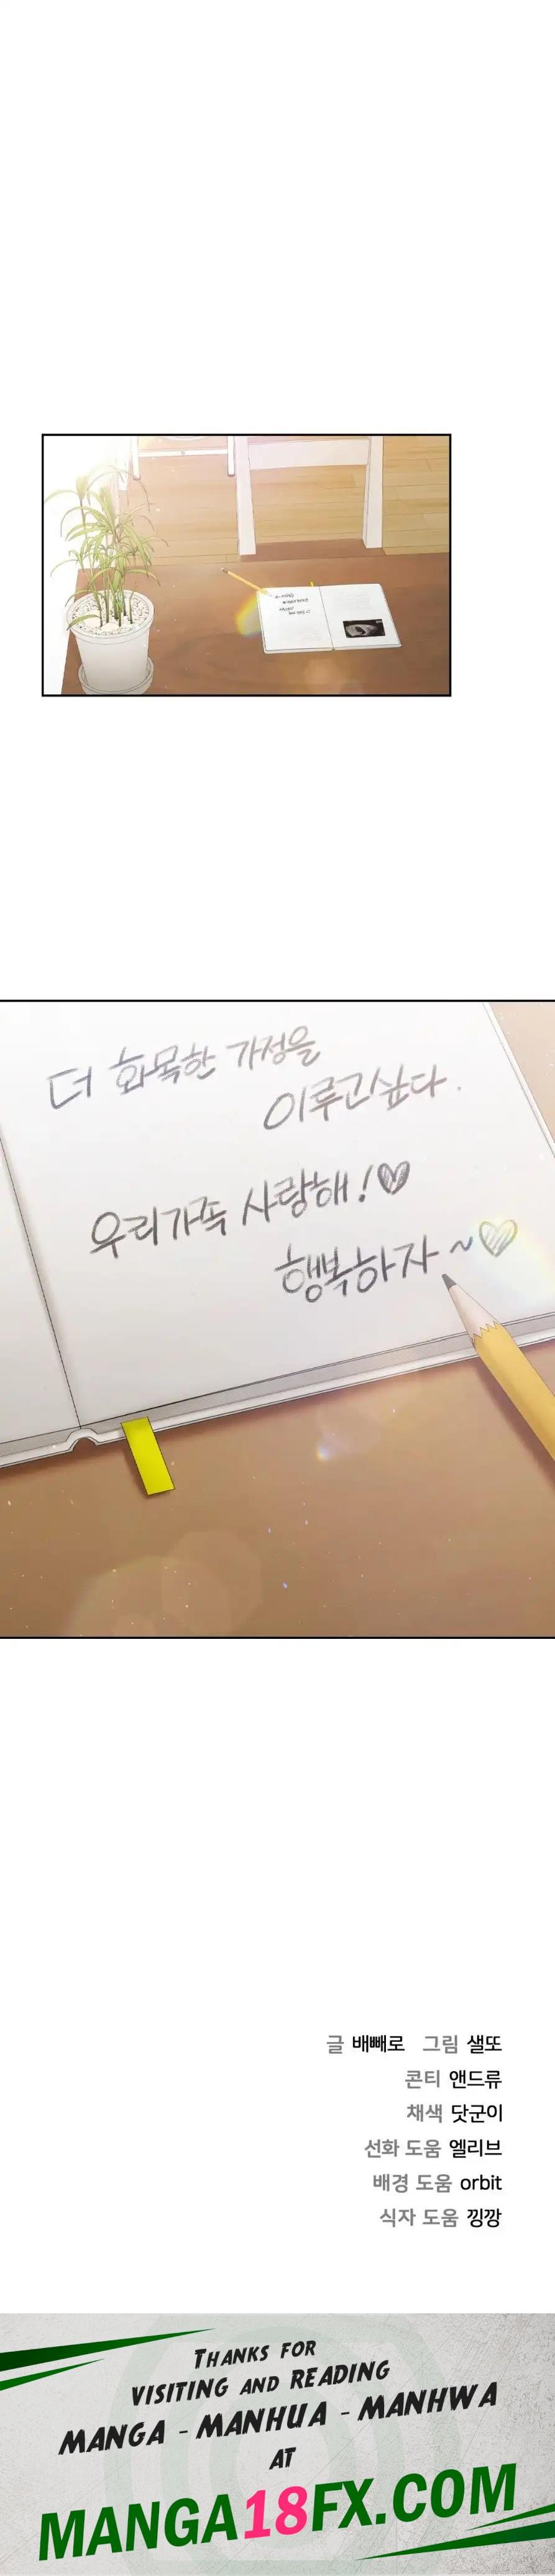 더 화목한 가정을
이루고싶다.
우리가족 사랑해!♡
행복하자~♡
글 배빼로 그림 샐또
콘티 앤드류
채색 닷군이
선화 도움 엘리브
배경 도움 orbit
식자 도움 낑깡
THANKS FOR
VISITING AND READING
MANGA - MANHUA - MANHWA
AT
MANGA18FX.COM